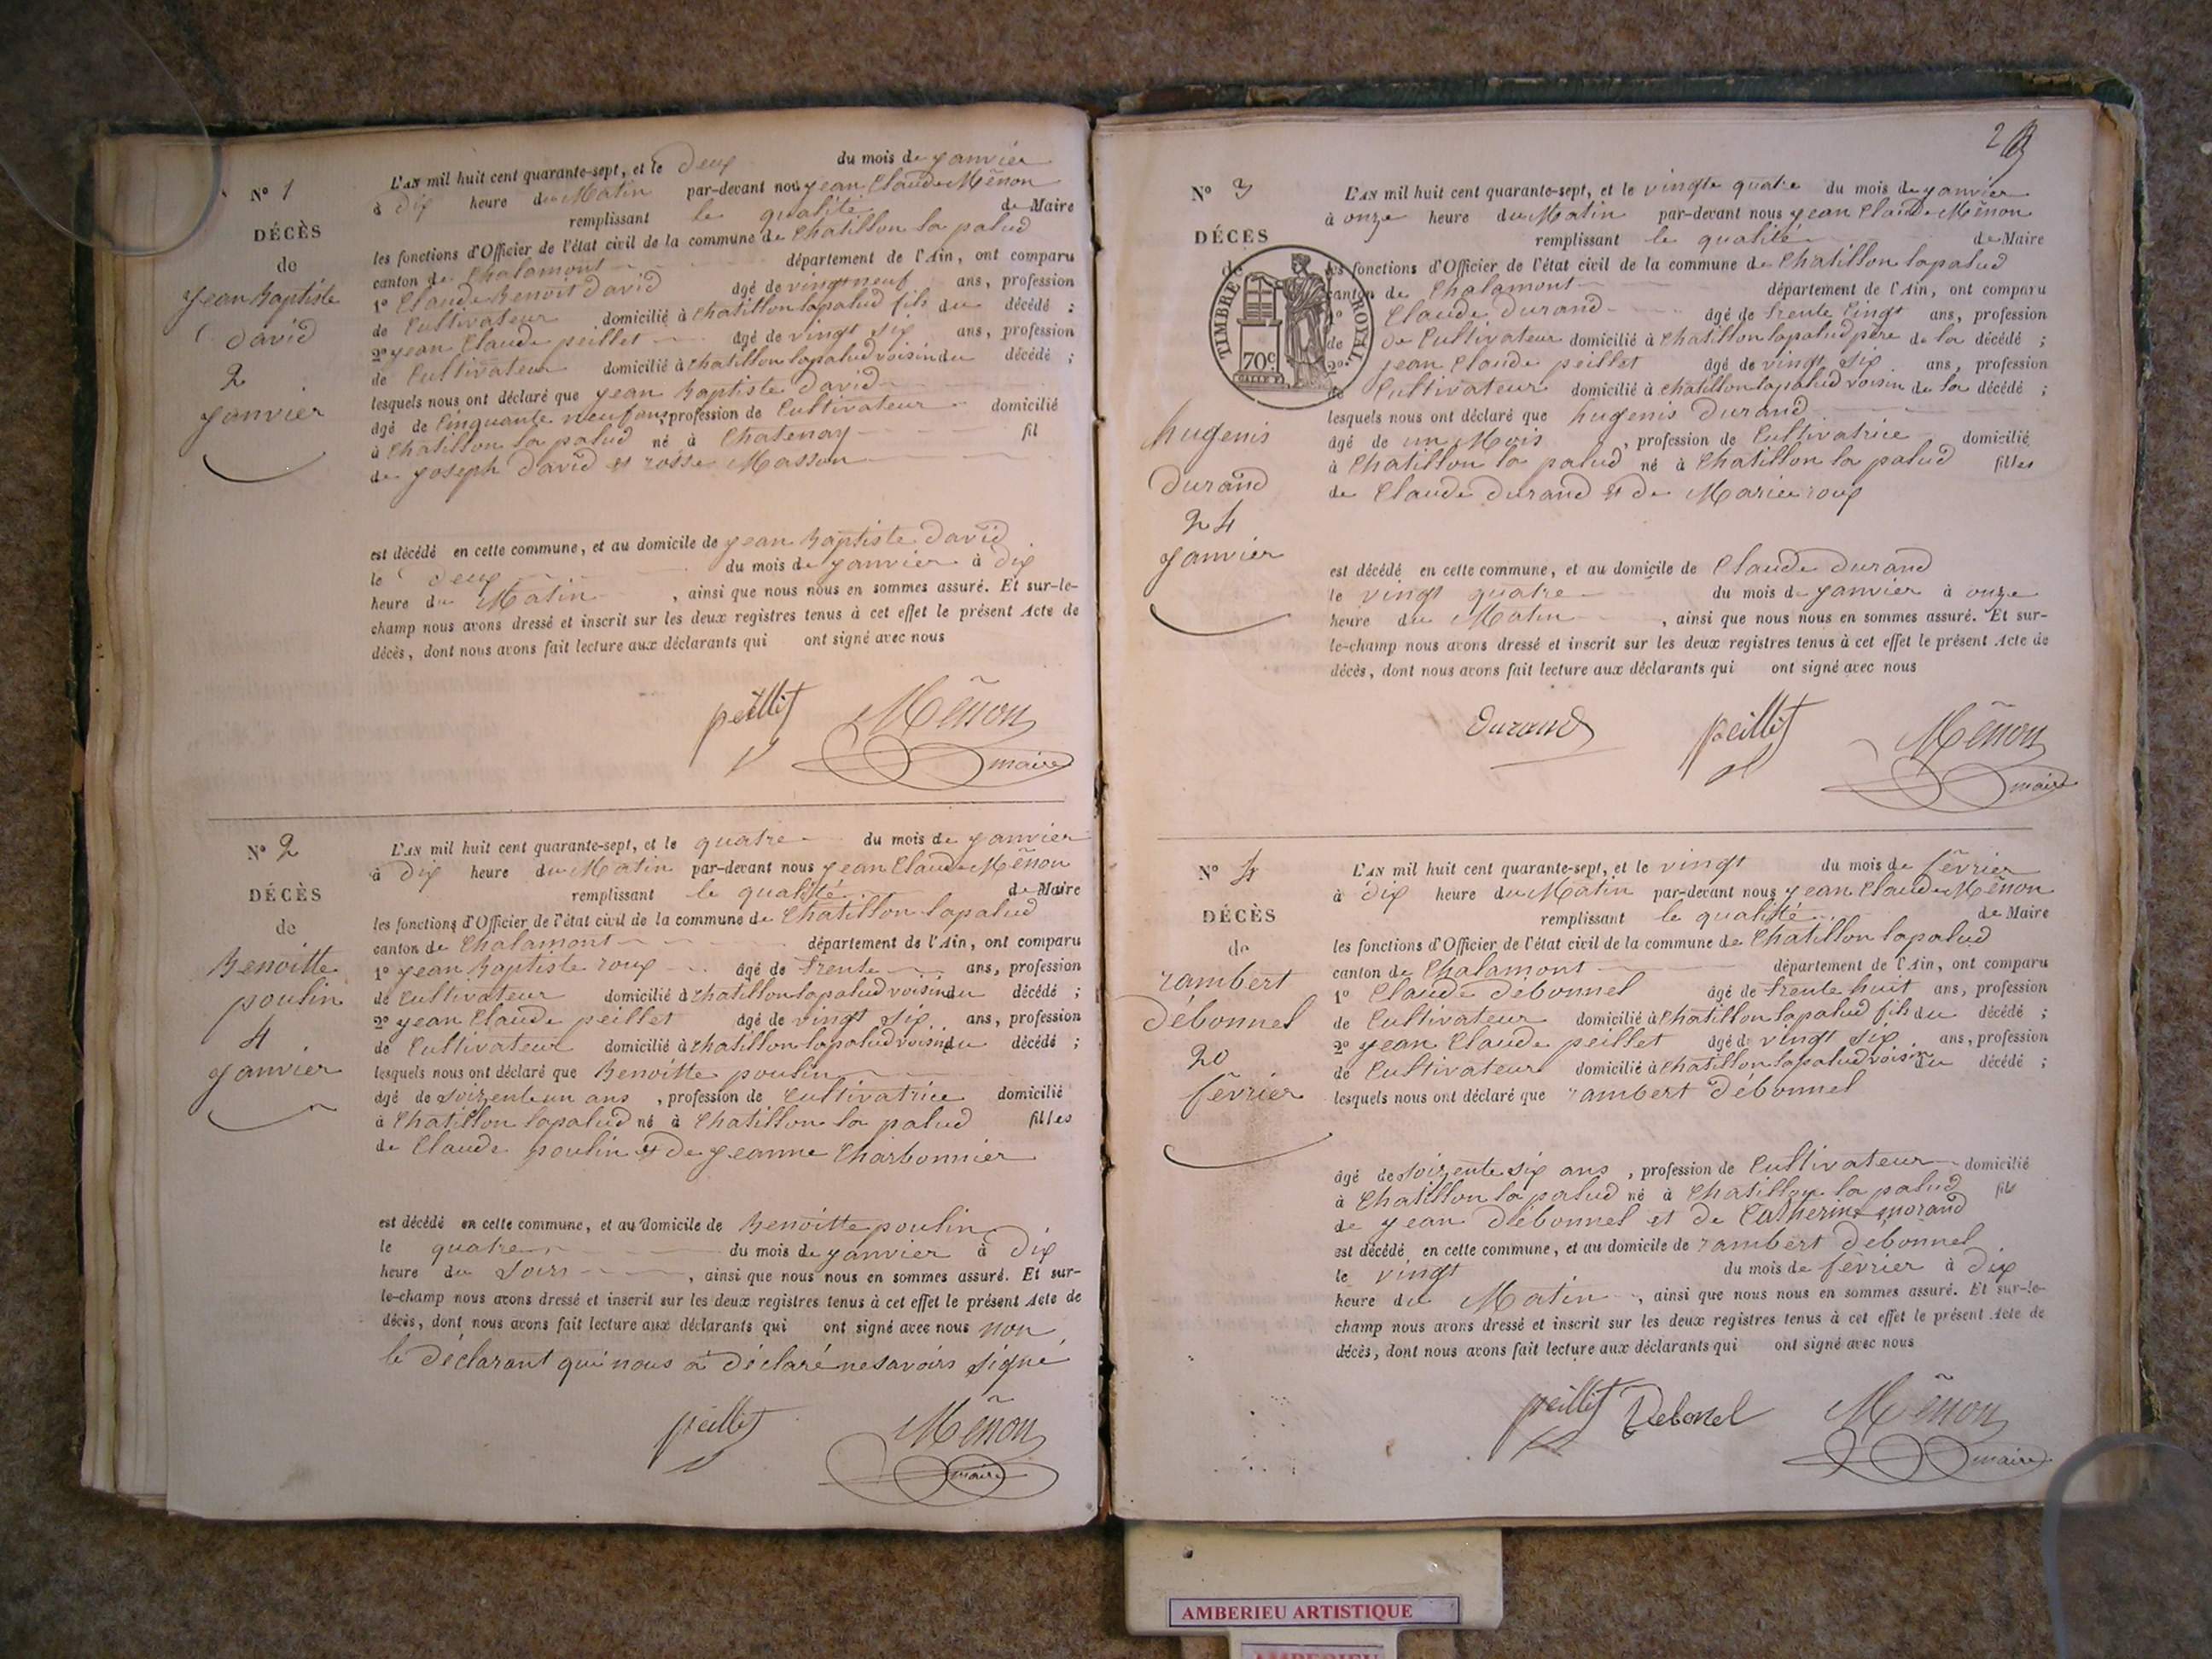 N° 1
DÉCÈS
de
jean baptiste
david
2
janvier
L'AN mil huit cent quarante-sept, et le deux du mois de janvier
à dix heure du Matin par-devant nous jean Claude Mênon
remplissant le qualité de Maire
les fonctions d'Officier de l'état civil de la commune de Chatillon la palud
canton de Chalamont département de l'Ain, ont comparu
1° Claude Benoit david âgé de vingt neuf ans, profession
de Cultivateur domicilié à Chatillon lapalud fils du décédé ;
2° jean Claude peillet âgé de vingt six ans, profession
de Cultivateur domicilié à chatillon lapalud voisin du décédé ;
lesquels nous ont déclaré que jean baptiste david
âgé de Cinquante neuf ans, profession de Cultivateur domicilié
à Chatillon la palud né à Chatenay fil
de joseph david et rosse Masson
est décédé en cette commune, et au domicile de jean baptiste david
le deux du mois de janvier à dix
heure du Matin, ainsi que nous nous en sommes assuré. Et sur-le-
champ nous avons dressé et inscrit sur les deux registres tenus à cet effet le présent Acte de
décès, dont nous avons fait lecture aux déclarants qui ont signé avec nous
peillet Mênon
maire
N° 2
DÉCÈS
de
Benoitte
poulin
4
janvier
L'AN mil huit cent quarante-sept, et le quatre du mois de janvier
à dix heure du Matin par-devant nous jean Claude Mênon
remplissant le qualité de Maire
les fonctions d'Officier de l'état civil de la commune de Chatillon lapalud
canton de Chalamont département de l'Ain, ont comparu
1° jean baptiste roux âgé de trente ans, profession
de Cultivateur domicilié à chatillon lapalud voisin du décédé ;
2° jean Claude peillet âgé de vingt six ans, profession
de Cultivateur domicilié à chatillon lapalud voisin du décédé ;
lesquels nous ont déclaré que Benoitte poulin
âgé de soizente un ans, profession de Cultivatrice domicilié
à Chatillon lapalud né à Chatillon la palud filles
de Claude poulin et de jeanne Charbonnier
est décédé en cette commune, et au domicile de Benoitte poulin
le quatre du mois de janvier à dix
heure du soirs, ainsi que nous nous en sommes assuré. Et sur-
le-champ nous avons dressé et inscrit sur les deux registres tenus à cet effet le présent Acte de
décès, dont nous avons fait lecture aux déclarants qui ont signé avec nous non
le déclarant qui nous a déclaré ne savoirs signé
peillet Mênon
maire
2
N° 3
DÉCES
de
TIMBRE ROYAL
70c
hugenis
durand
24
janvier
L'AN mil huit cent quarante-sept, et le vingte quatre du mois de janvier
à onze heure du Matin par-devant nous jean Claude Mênon
remplissant le qualité de Maire
les fonctions d'Officier de l'état civil de la commune de Chatillon lapalud
canton de Chalamont département de l'Ain, ont comparu
1° Claude durand âgé de trente Cinqt ans, profession
de de Cultivateur domicilié à Chatillon lapalud père de la décédé ;
2° jean Claude peillet âgé de vingt six ans, profession
de Cultivateur domicilié à chatillon lapalud voisin de la décédé ;
lesquels nous ont déclaré que hugenis durand
âgé de un Mois, profession de Cultivatrice domicilié
à Chatillon la palud né à Chatillon la palud filles
de Claude durand et de Marie roux
est décédé en cette commune, et au domicile de Claude durand
le vingt quatre du mois de janvier à onze
heure du Matin, ainsi que nous nous en sommes assuré. Et sur-
le-champ nous avons dressé et inscrit sur les deux registres tenus à cet effet le présent Acte de
décès, dont nous avons fait lecture aux déclarants qui ont signé avec nous
durand peillet Mênon
maire
N° 4
DÉCÈS
de
rambert
débonnel
20
février
L'AN mil huit cent quarante-sept, et le vingt du mois de février
à dix heure du Matin par-devant nous jean Claude Mênon
remplissant le qualité de Maire
les fonctions d'Officier de l'état civil de la commune de Chatillon lapalud
canton de Chalamont département de l'Ain, ont comparu
1° Claude debonnel âgé de trente huit ans, profession
de Cultivateur domicilié à Chatillon lapalud fils du décédé ;
2° jean Claude peillet âgé de vingt six ans, profession
de Cultivateur domicilié à Chatillon lapalud voisin du décédé ;
lesquels nous ont déclaré que rambert débonnel
âgé de soizente six ans, profession de Cultivateur domicilié
à Chatillon la palud né à Chatillon la palud fils
de jean débonnel et de Catherine morand
est décédé en cette commune, et au domicile de rambert débonnel
le vingt du mois de février à dix
heure du Matin, ainsi que nous nous en sommes assuré. Et sur-le-
champ nous avons dressé et inscrit sur les deux registres tenus à cet effet le présent Acte de
décès, dont nous avons fait lecture aux déclarants qui ont signé avec nous
peillet Debonel Mênon
maire
AMBERIEU ARTISTIQUE
AMBERIEU